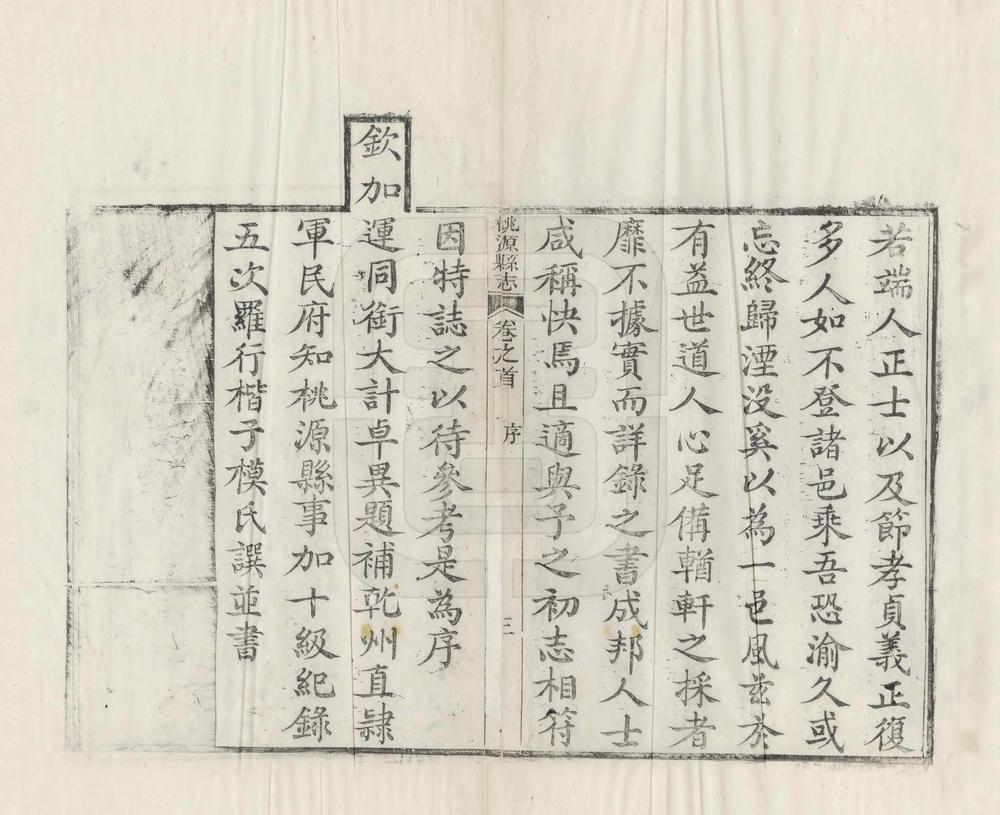 若端人正士以及節孝貞義正復
多人如不登諸邑乘吾恐渝久或
忘終歸湮没奚以為一邑風茲於
有益世道人心足備輶軒之採者
靡不據實而詳錄之書成邦人士
咸稱快焉且適與予之初志相符
桃源縣志 卷之首 序 三
因特誌之以待參考是為序
欽加
運同銜大計卓異題補乾州直隷
軍民府知桃源縣事加十級紀錄
五次羅行楷子模氏譔並書